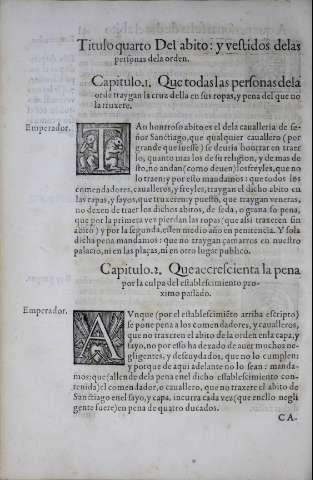 Titulo quarto Del abito: y vestidos delas
personas dela orden.
Capitulo.1. Que todas las personas dela
orde traygan la cruz della en sus ropas, y pena del que no
la truxere.
Emperador.
TAn honrroso abito es el dela caualleria de se-
ñor Sanctiago, que qualquier cauallero (por
grande que fuesse) se deuria honrrar en traer
lo, quanto mas los de su religion, y de mas de
esto, no andan (como deuen) los freyles, que no
lo traen: y por esto mandamos: que todos los
comendadores, caualleros, y freyles, traygan el dicho abito en
las ropas, y sayos, que truxeren: y puesto, que traygan veneras,
no dexen de traer los dichos abitos, de seda, o grana so pena,
que por la primera vez pierdan las ropas (que assi traxeren sin
abito) y por la segunda, esten medio año en penitencia. Y so la
dicha pena mandamos: que no traygan camarros en nuestro
palacio, ni en las plaças, ni en otro lugar publico.
Capitulo.2. Que acrescienta la pena
por la culpa del establescimiento pro-
ximo passado.
Emperador.
AVnque (por el establescimiẽto arriba escripto)
se pone pena a los comendadores, y caualleros,
que no traxeren el abito de la orden enla capa, y
sayo, no por esso ha dexado de auer muchos ne-
gligentes, y descuydados, que no lo cumplen:
y porque de aqui adelante no lo sean: manda-
mos: que (allende dela pena enel dicho establescimiento con-
tenida) el comendador, o cauallero, que no traxere el abito de
Sanctiago enel sayo, y capa, incurra cada vez (que enello negli
gente fuere) en pena de quatro ducados.
CA-